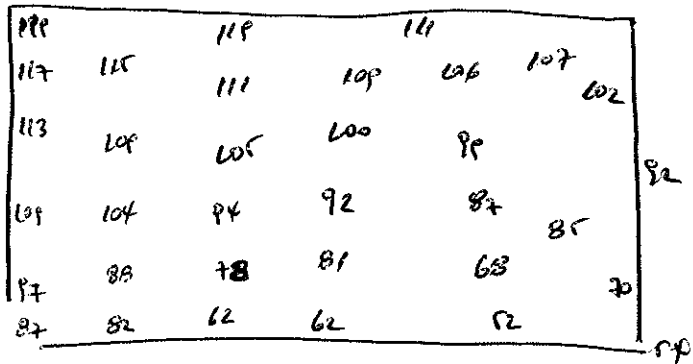 119 119 111
117 115 111 109 106 107 102
113 109 105 100 99
92
109 104 94 92 87
85
97 88 78 81 68 70
87 82 62 62 52